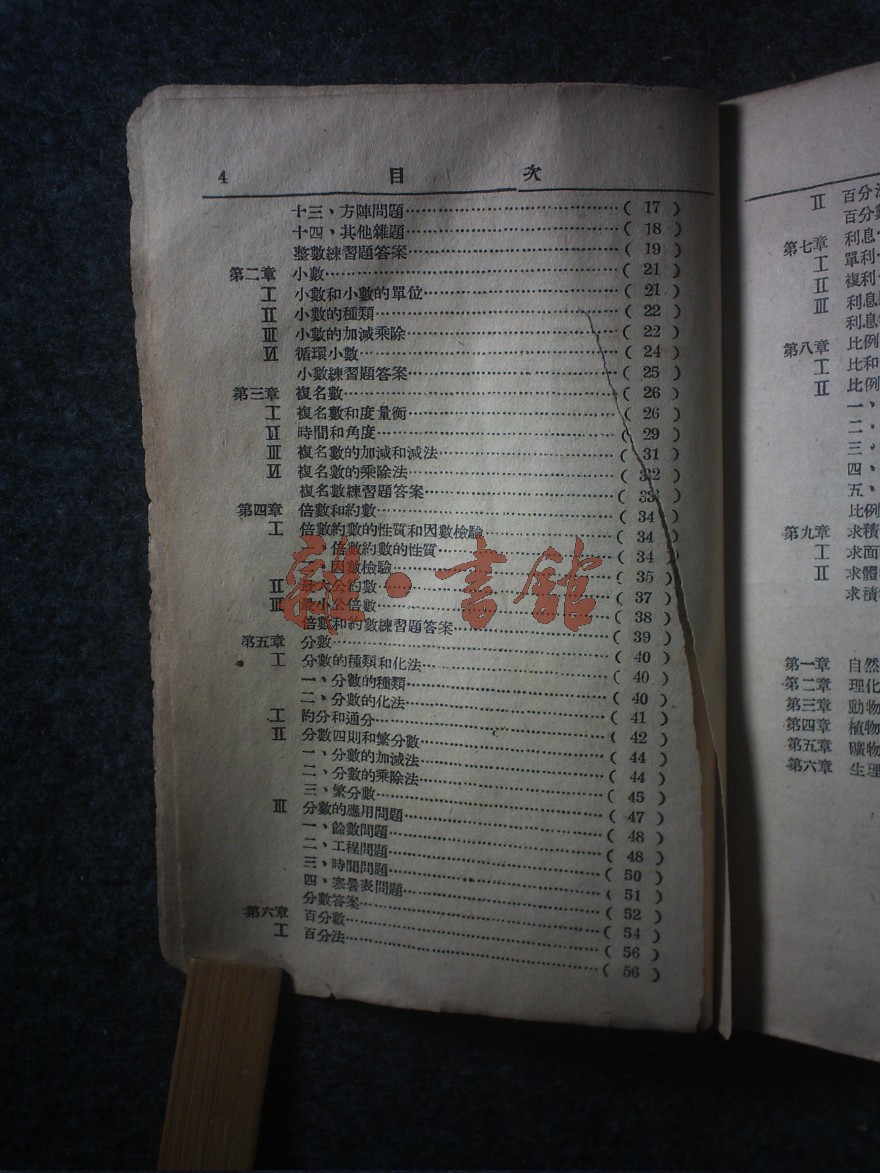 4 目 次
十三、方陣問題……(17)
十四、其他雜題……(18)
整數練習題答案……(19)
第二章 小數……(21)
Ⅰ 小數和小數的單位……(21)
Ⅱ 小數的種類……(22)
Ⅲ 小數的加減乘除……(22)
Ⅵ 循環小數……(24)
小數練習題答案……(25)
第三章 複名數……(26)
Ⅰ 複名數和度量衡……(26)
Ⅵ 時間和角度……(29)
Ⅲ 複名數的加減和減法……(31)
Ⅵ 複名數的乘除法……(32)
複名數練習題答案……(33)
第四章 倍數和約數……(34)
Ⅰ 倍數約數的性質和因數檢驗……(34)
倍數約數的性質……(34)
因數檢驗……(35)
Ⅱ 最大公約數……(37)
Ⅲ 最小公倍數……(38)
倍數和約數練習題答案……(39)
第五章 分數……(40)
Ⅰ 分數的種類和化法……(40)
一、分數的種類……(40)
二、分數的化法……(41)
Ⅰ 約分和通分……(42)
Ⅱ 分數四則和繁分數……(44)
一、分數的加減法……(44)
二、分數的乘除法……(45)
三、繁分數……(47)
Ⅲ 分數的應用問題……(48)
一、餘數問題……(48)
二、工程問題……(50)
三、時間問題……(51)
四、寒暑表問題……(52)
分數答案……(54)
第六章 百分數……(56)
Ⅰ 百分法……(56)
Ⅱ 百分法
百分數
第七章 利息
Ⅰ 單利
Ⅱ 複利
Ⅲ 利息
利息
第八章 比例
Ⅰ 比和
Ⅱ 比例
一、
二、
三、
四、
五、
比例
第九章 求積
Ⅰ 求面
Ⅱ 求體
求積
第一章 自然
第二章 理化
第三章 動物
第四章 植物
第五章 礦物
第六章 生理
書館